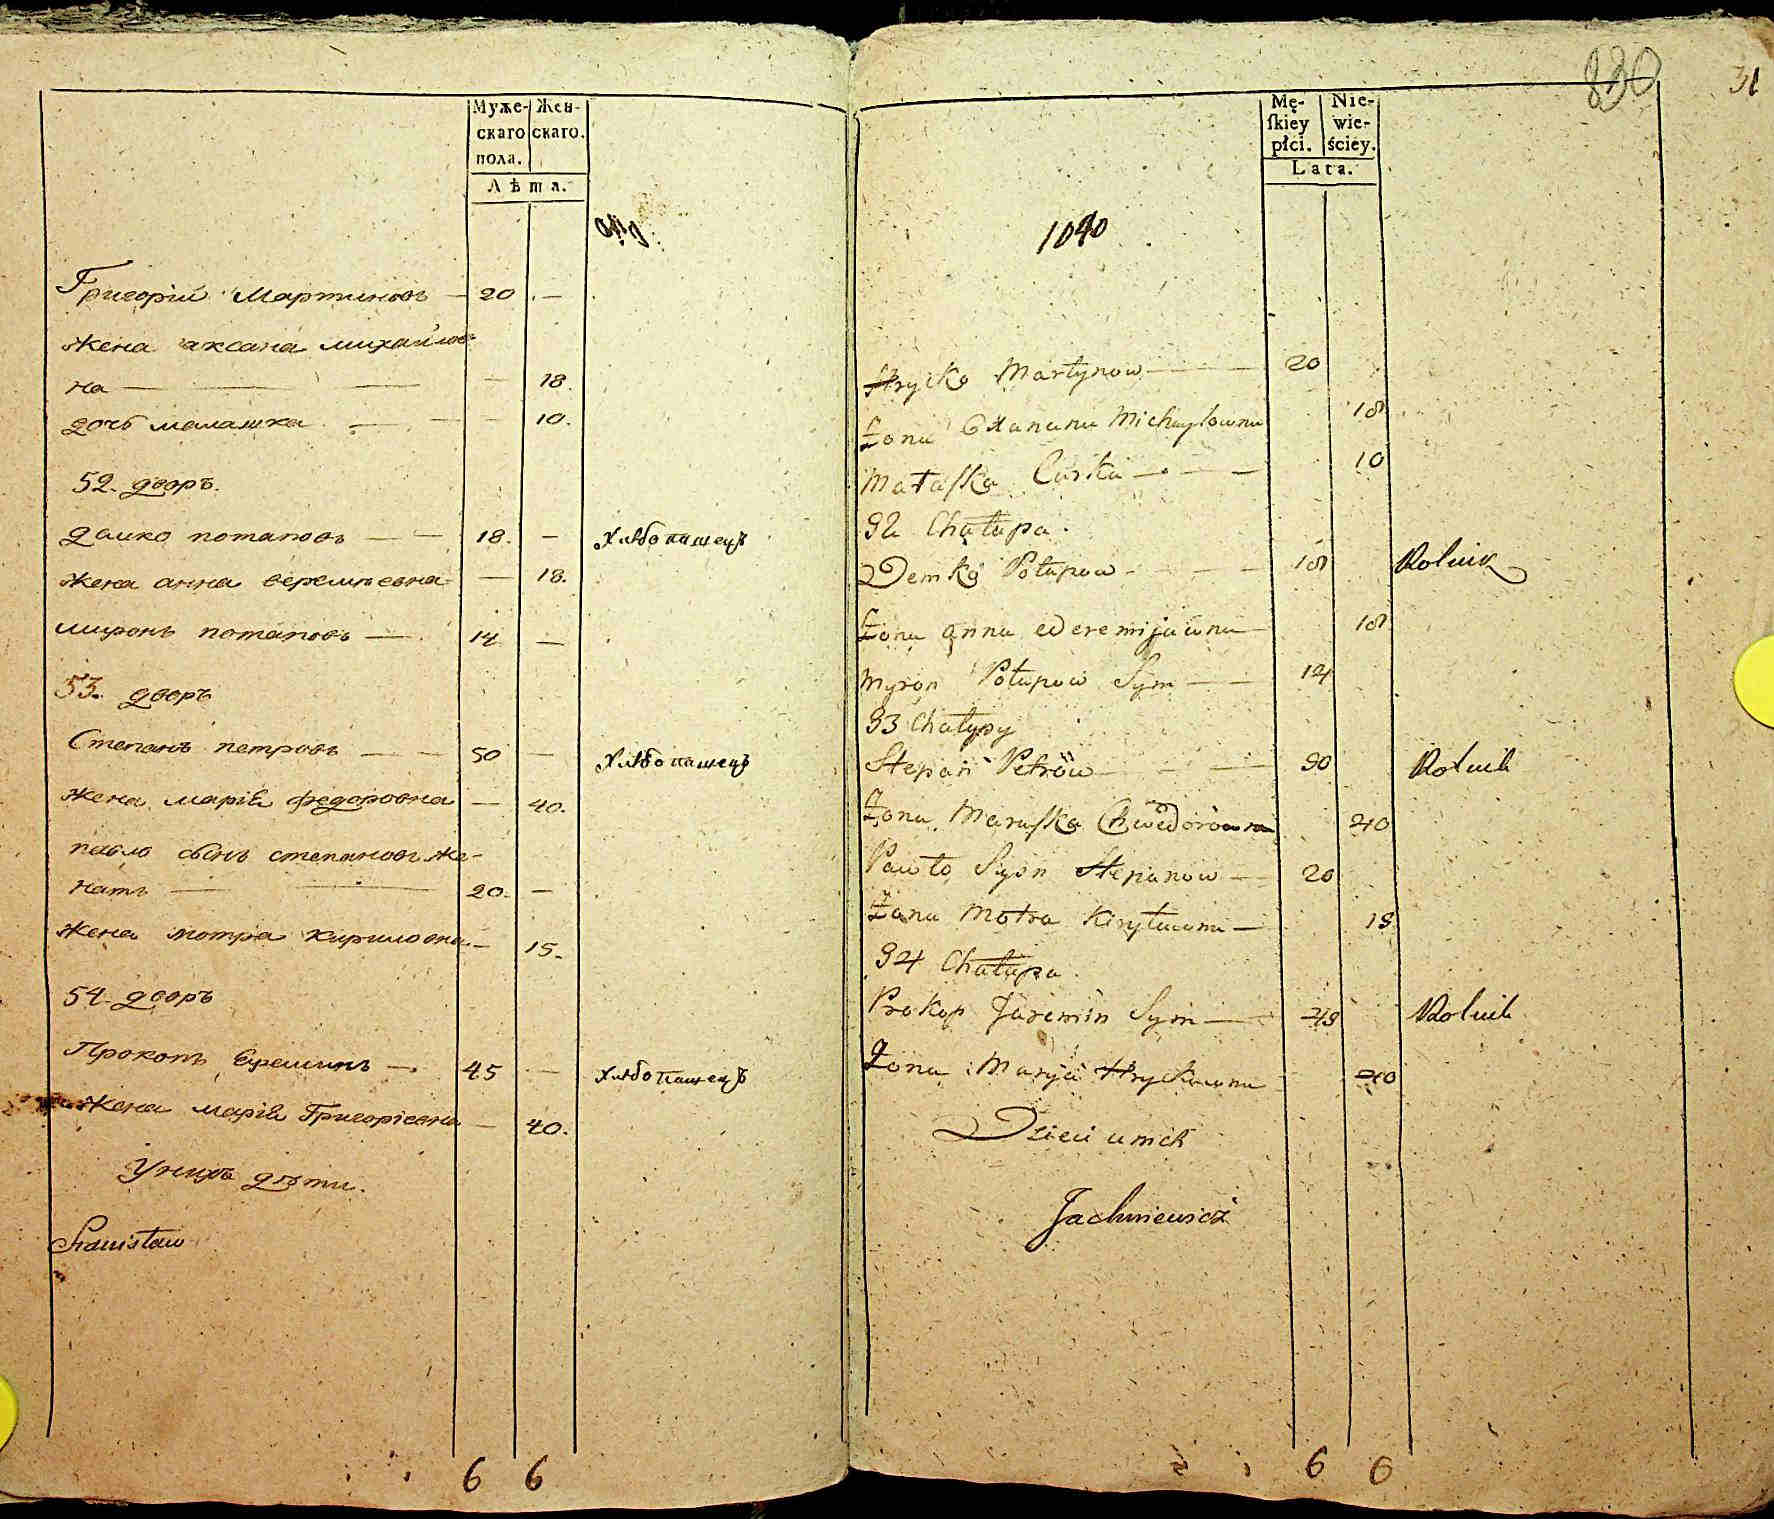 Муже- Жен-
скаго скаго.
пола.
Лѣта.
Григорій Мартиновъ — 20 —
жена аксана михайлов
на — — — 18.
дочь малашка — — 10.
52. дворъ.
Демко потаповъ — — 18. — хлѣбопашецъ
жена анна веремѣевна — 18.
миронъ потаповъ — 14 —
53. дворъ
Степанъ петровъ — — 50 — хлѣбопашецъ
жена марія федоровна — 40.
павло сынъ степановъ же-
натъ — — 20. —
жена мотра кириловна — 15.
54. дворъ
Прокопъ Еремин — 45 — хлѣбопашецъ
жена марія Григоріевна — 40.
Унихъ дѣти.
Stanisław
6 6
830
31
Mę- Nie-
ſkiey wie-
płci. ściey.
Lata.
1040
Hryćko Martynow — — 20
Żona Oxanana Michayłowna 18
Małaſka Curka — — 10
52 Chałupa
Demko Potapow — — 18 Rolnik
Żona anna ederemijawna — 18
Myron Potapow Syn — — 14
53 Chałupy
Stepan Petrów — — 50 Rolnik
Żona Maruſka Chwedorówna 40
Pawło Syn Stepanow — 20
Żona Motra Kiryłowna — 15
54 Chałupa
Prokop Jaremin Syn — 45 Rolnik
Żona Marya Hryćkowna 40
Dzieci u nich
Jachniewicz
6 6